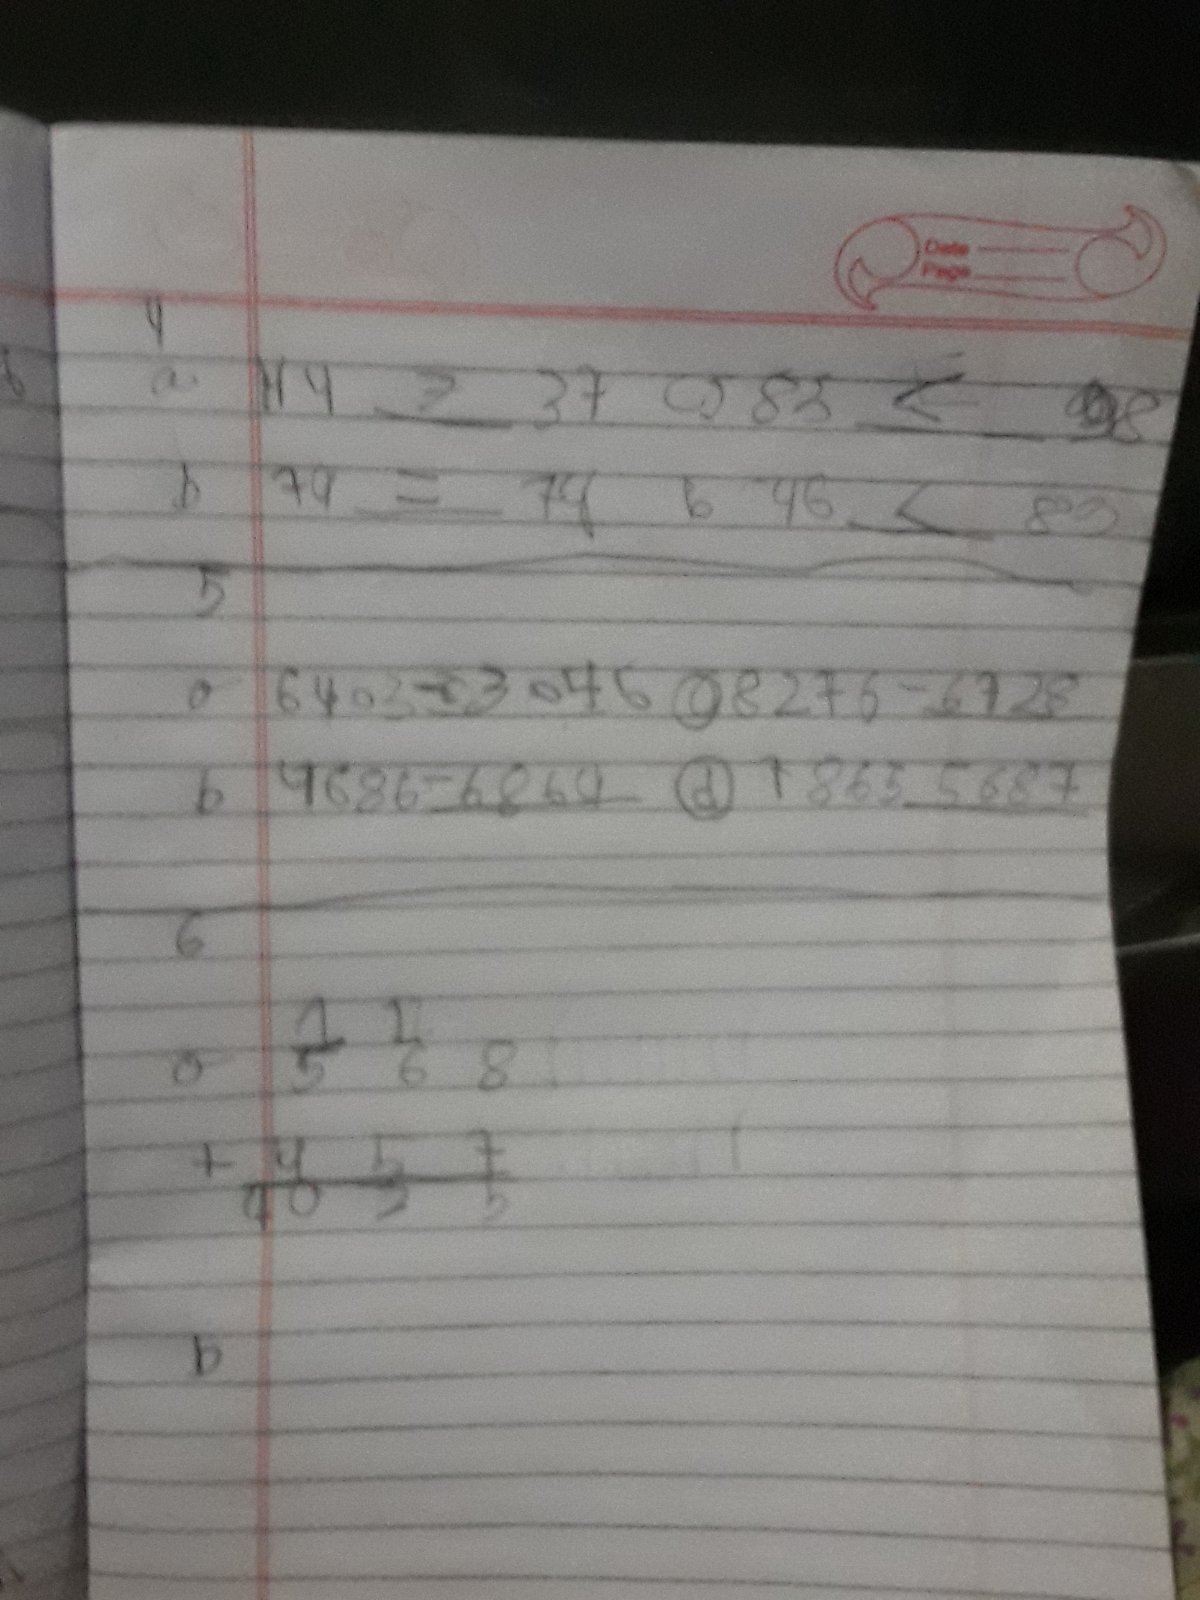 Date
Page
4
a 114 > 37 a 83 < 98
b 74 = 74 b 46 < 83
5
a 6403-3046 a 8276-6728
b 4686-6864 d 7863 5687
6
1 1
a 5 6 8
+ 4 5 7
10 2 5
b